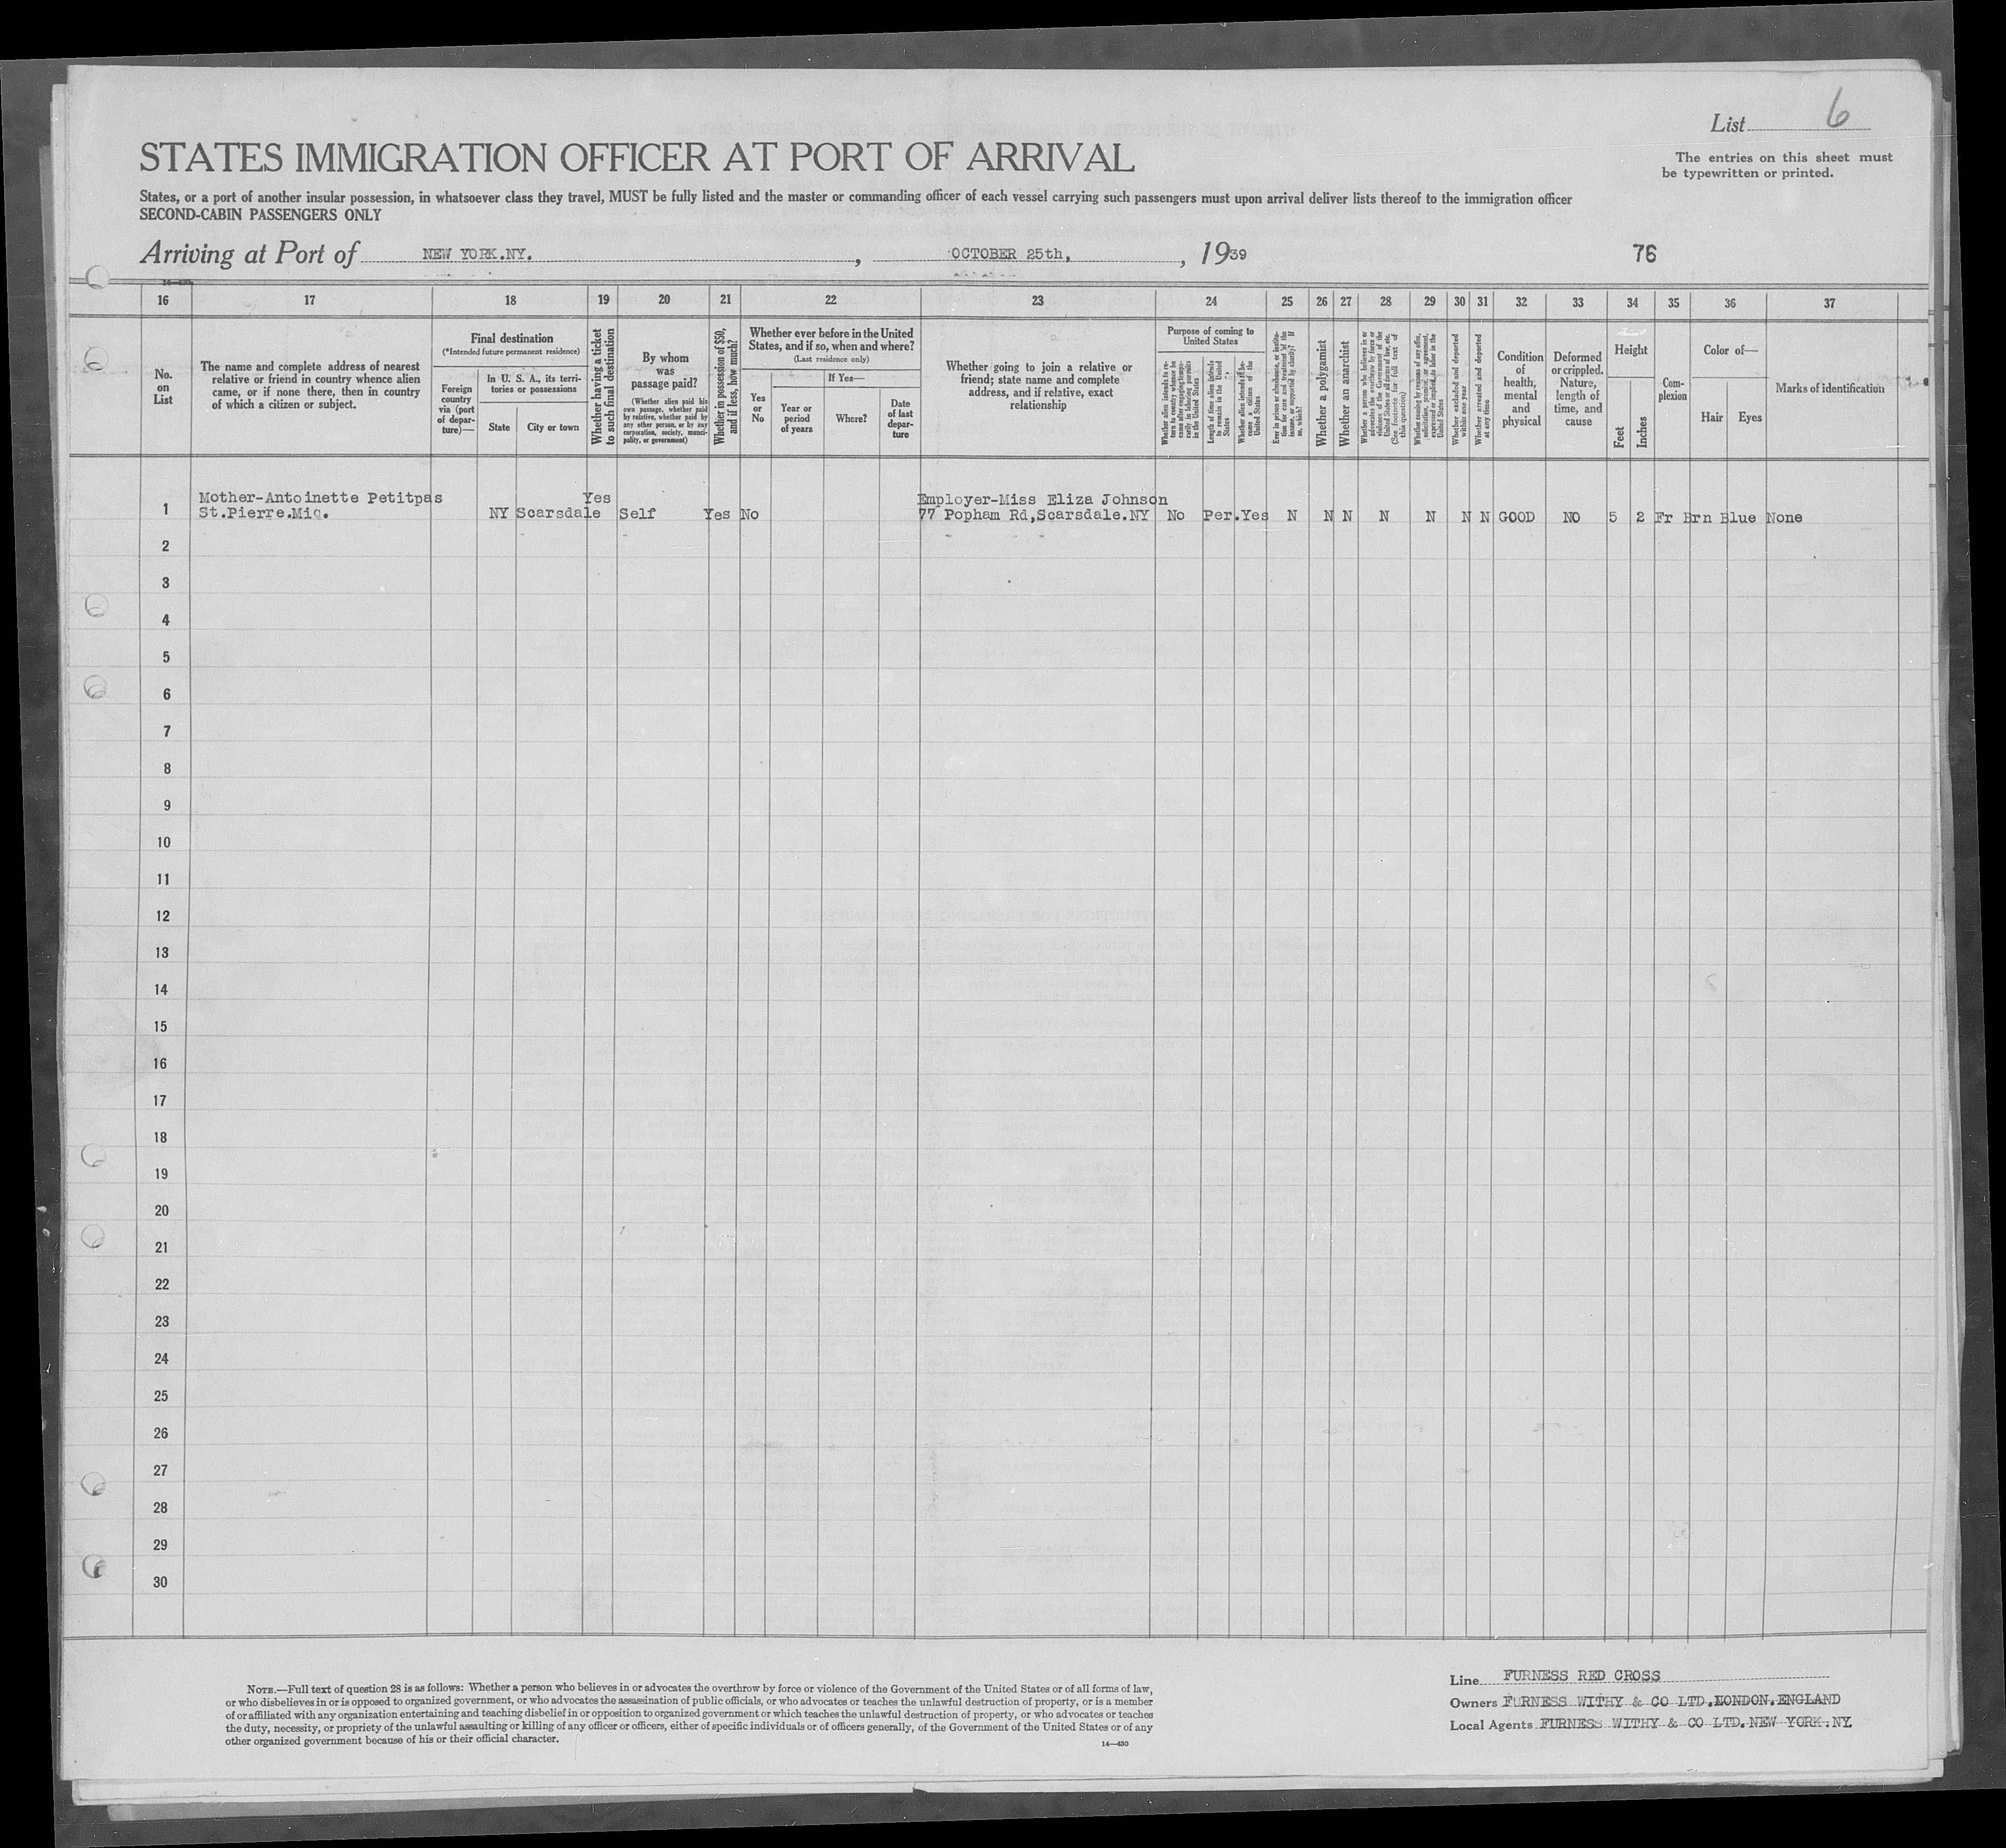 List 6
The entries on this sheet must
be typewritten or printed.
STATES IMMIGRATION OFFICER AT PORT OF ARRIVAL
States, or a port of another insular possession, in whatsoever class they travel, MUST be fully listed and the master or commanding officer of each vessel carrying such passengers must upon arrival deliver lists thereof to the immigration officer
SECOND-CABIN PASSENGERS ONLY
Arriving at Port of NEW YORK.NY. , OCTOBER 25th, , 1939 76
16 17 18 19 20 21 22 23 24 25 26 27 28 29 30 31 32 33 34 35 36 37
No.
on
List
The name and complete address of nearest
relative or friend in country whence alien
came, or if none there, then in country
of which a citizen or subject.
Final destination
(*Intended future permanent residence)
Foreign
country
via (port
of depar-
ture)—
In U. S. A., its terri-
tories or possessions
State City or town
Whether having a ticket
to such final destination
By whom
was
passage paid?
(Whether alien paid his
own passage, whether paid
by relative, whether paid by
any other person, or by any
corporation, society, munici-
pality, or government)
Whether in possession of $50,
and if less, how much?
Whether ever before in the United
States, and if so, when and where?
(Last residence only)
Yes
or
No
If Yes—
Year or
period
of years
Where?
Date
of last
depar-
ture
Whether going to join a relative or
friend; state name and complete
address, and if relative, exact
relationship
Purpose of coming to
United States
Whether alien intends to re-
turn to country whence he
came after engaging tempo-
rarily in laboring pursuits
in the United States
Length of time alien intends
to remain in the United
States
Whether alien intends to be-
come a citizen of the
United States
Ever in prison or almshouse, or institu-
tion for care and treatment of the
insane, or supported by charity? If
so, which?
Whether a polygamist
Whether an anarchist
Whether a person who believes in or
advocates the overthrow by force or
violence of the Government of the
United States or all forms of law, etc.
(See footnote for full text of
this question)
Whether coming by reason of any offer,
solicitation, promise, or agreement,
expressed or implied, to labor in the
United States
Whether excluded and deported
within one year
Whether arrested and deported
at any time
Condition
of
health,
mental
and
physical
Deformed
or crippled.
Nature,
length of
time, and
cause
Height
Feet
Inches
Com-
plexion
Color of—
Hair Eyes
Marks of identification
Mother-Antoinette Petitpas Yes Employer-Miss Eliza Johnson
1 St.Pierre.Miq. NY Scarsdale Self Yes No 77 Popham Rd,Scarsdale.NY No Per.Yes N N N N N N N GOOD NO 5 2 Fr Brn Blue None
2
3
4
5
6
7
8
9
10
11
12
13
14
15
16
17
18
19
20
21
22
23
24
25
26
27
28
29
30
NOTE.—Full text of question 28 is as follows: Whether a person who believes in or advocates the overthrow by force or violence of the Government of the United States or of all forms of law,
or who disbelieves in or is opposed to organized government, or who advocates the assassination of public officials, or who advocates or teaches the unlawful destruction of property, or is a member
of or affiliated with any organization entertaining and teaching disbelief in or opposition to organized government or which teaches the unlawful destruction of property, or who advocates or teaches
the duty, necessity, or propriety of the unlawful assaulting or killing of any officer or officers, either of specific individuals or of officers generally, of the Government of the United States or of any
other organized government because of his or their official character.
14—430
Line FURNESS RED CROSS
Owners FURNESS WITHY & CO LTD.LONDON.ENGLAND
Local Agents FURNESS WITHY & CO LTD.NEW YORK.NY.